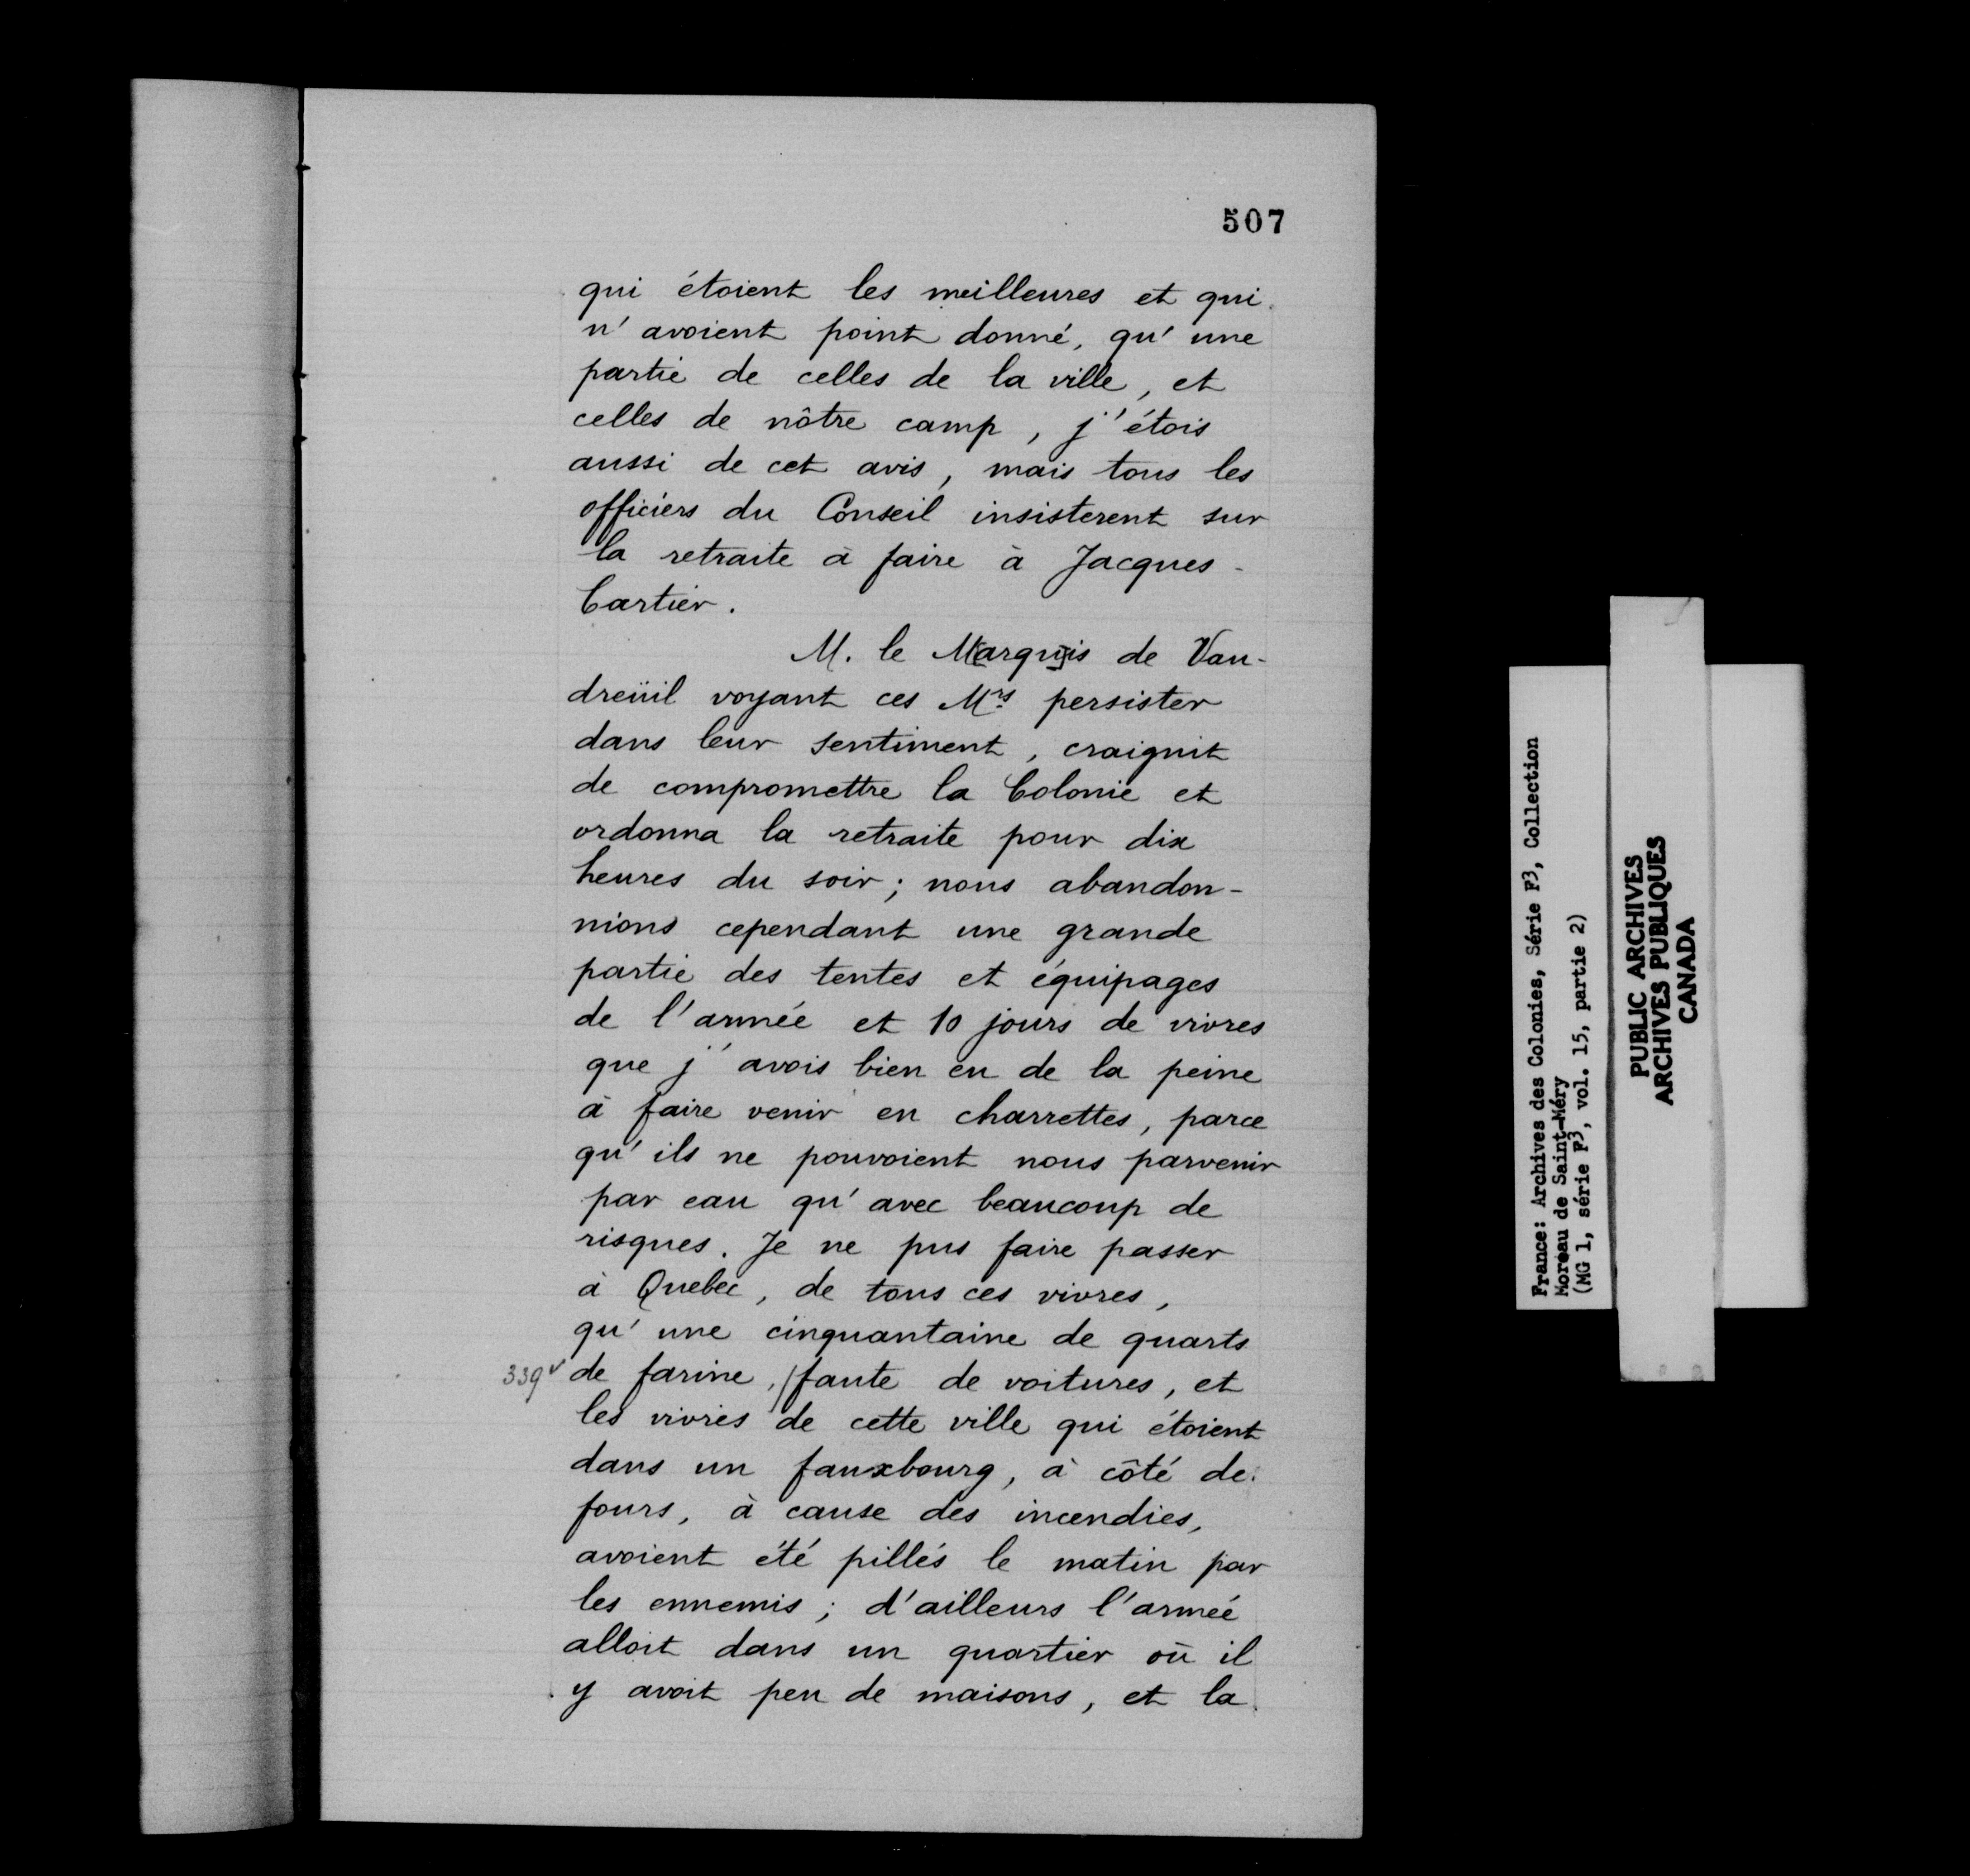 507
qui étoient les meilleures et qui
n'avoient point donné, qu'une
partie de celles de la ville, et
celles de nôtre camp, j'étois
aussi de cet avis, mais tous les
officiers du Conseil insisterent sur
la retraite à faire à Jacques-
Cartier.
M. le M[arqu]is de Vau-
dreüil voyant ces Mrs persister
dans leur sentiment, craignit
de compromettre la Colonie et
ordonna la retraite pour dix
heures du soir; nous abandon-
nions cependant une grande
partie des tentes et équipages
de l'armée et 10 jours de vivres
que j'avois bien eu de la peine
à faire venir en charrettes, parce
qu'ils ne pouvoient nous parvenir
par eau qu'avec beaucoup de
risques. Je ne pus faire passer
à Quebec, de tous ces vivres,
qu'une cinquantaine de quarts
339v de farine, / faute de voitures, et
les vivres de cette ville qui étoient
dans un fauxbourg, à côté de
fours, à cause des incendies,
avoient été pillés le matin par
les ennemis; d'ailleurs l'armée
alloit dans un quartier où il
y avoit peu de maisons, et la
France: Archives des Colonies, Série F3, Collection
Moreau de Saint-Méry
(MG 1, série F3, vol. 15, partie 2)
PUBLIC ARCHIVES
ARCHIVES PUBLIQUES
CANADA